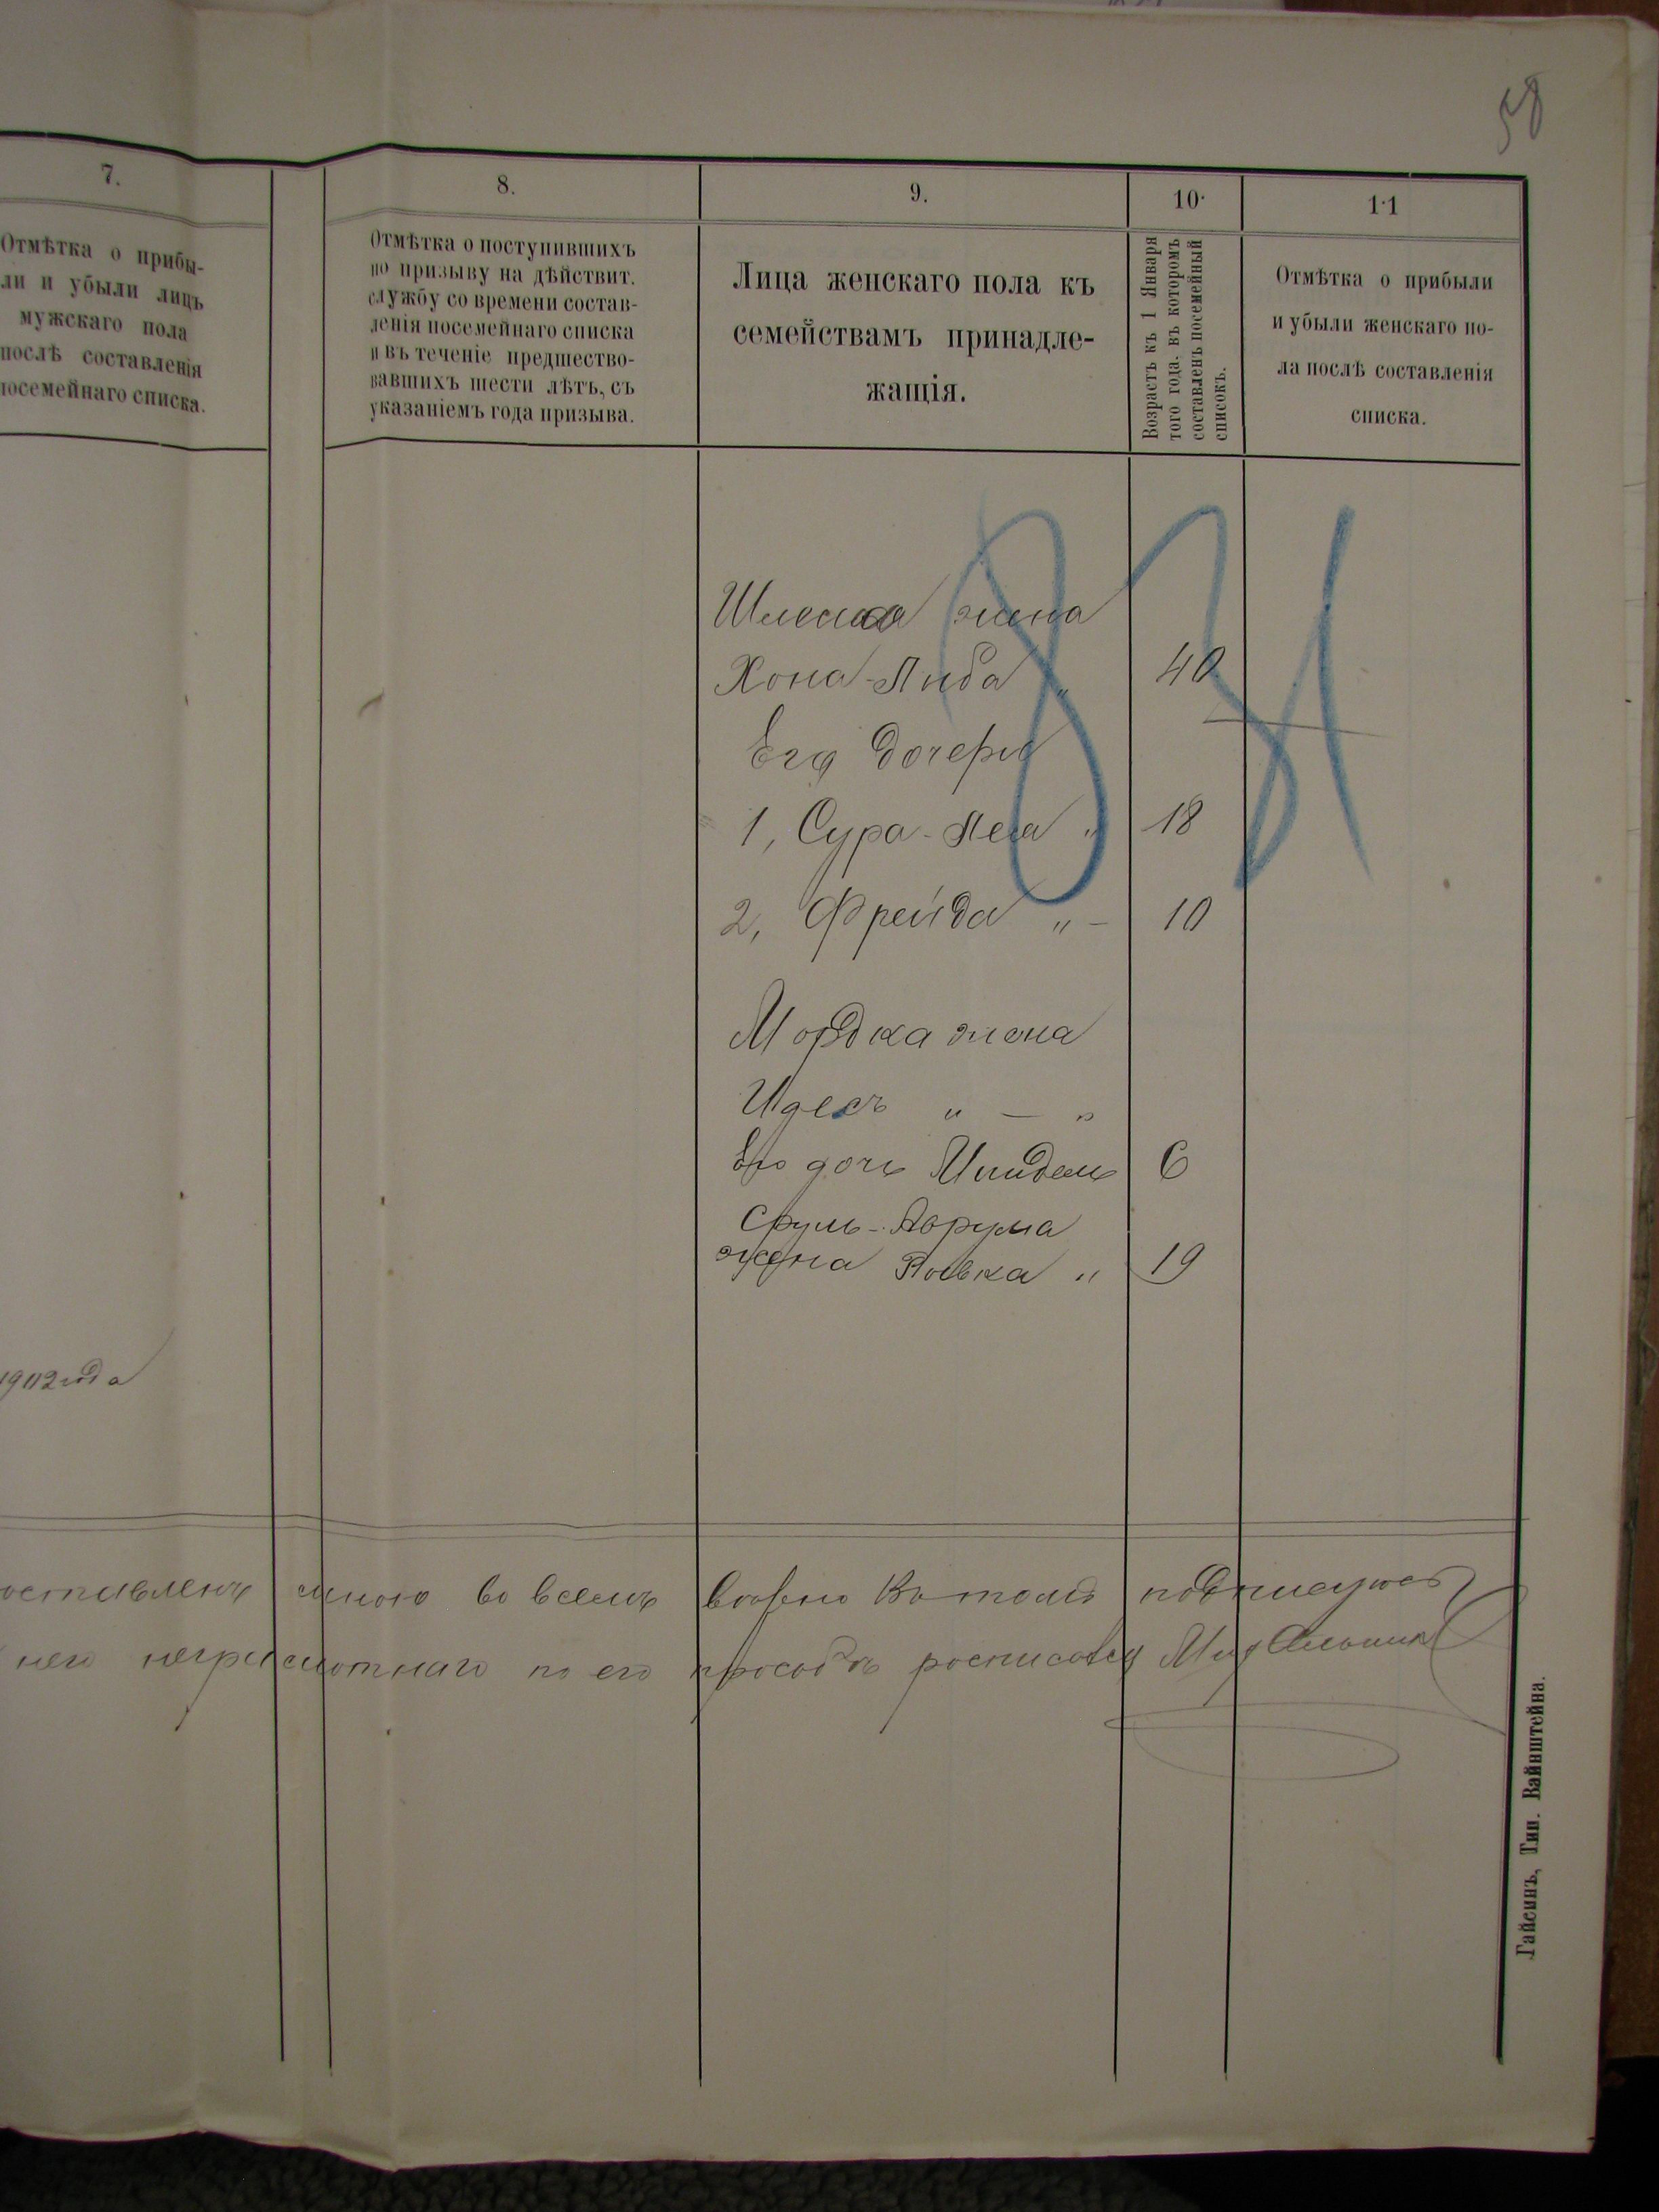 58
7.
Отмѣтка о прибы-
ли и убыли лицъ
мужскаго пола
послѣ составленія
посемейнаго списка.
8.
Отмѣтка о поступившихъ
по призыву на дѣйствит.
службу со времени состав-
ленія посемейнаго списка
и въ теченіе предшество-
вавшихъ шести лѣтъ, съ
указаніемъ года призыва.
9.
Лица женскаго пола къ
семействамъ принадле-
жащія.
10.
Возрастъ къ 1 Января
того года. въ которомъ
составленъ посемейный
списокъ.
11
Отмѣтка о прибыли
и убыли женскаго по-
ла послѣ составленія
списка.
жена
Хона-Либа " 40
Его дочери
1, Сура-Лея " 18
2, Фрейда " - 10
Мордка жена
Идесъ " — "
Его дочь Миндель 6
Сруль-Аврума
жена Ривка " 19
1912 года
оставленъ мною во всемъ вѣрно въ томъ подписуюсь
него неграмотнаго по его просьбѣ росписался
Гайсинъ, Тип. Вайнштейна.